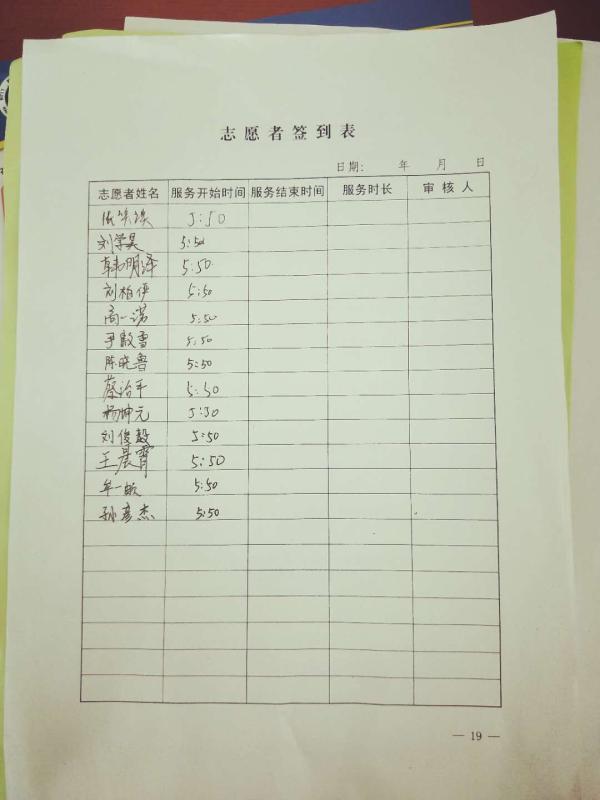 志愿者签到表
日期: 年 月 日
志愿者姓名 服务开始时间 服务结束时间 服务时长 审核人
5:50
刘学昊 5:50
韩明泽 5:50
刘柏伊 5:50
高一诺 5:50
尹散雪 5:50
陈晓鲁 5:50
蔡治平 5:50
杨坤元 5:50
刘俊毅 5:50
王晨霄 5:50
牟一 5:50
孙彦杰 5:50
— 19 —